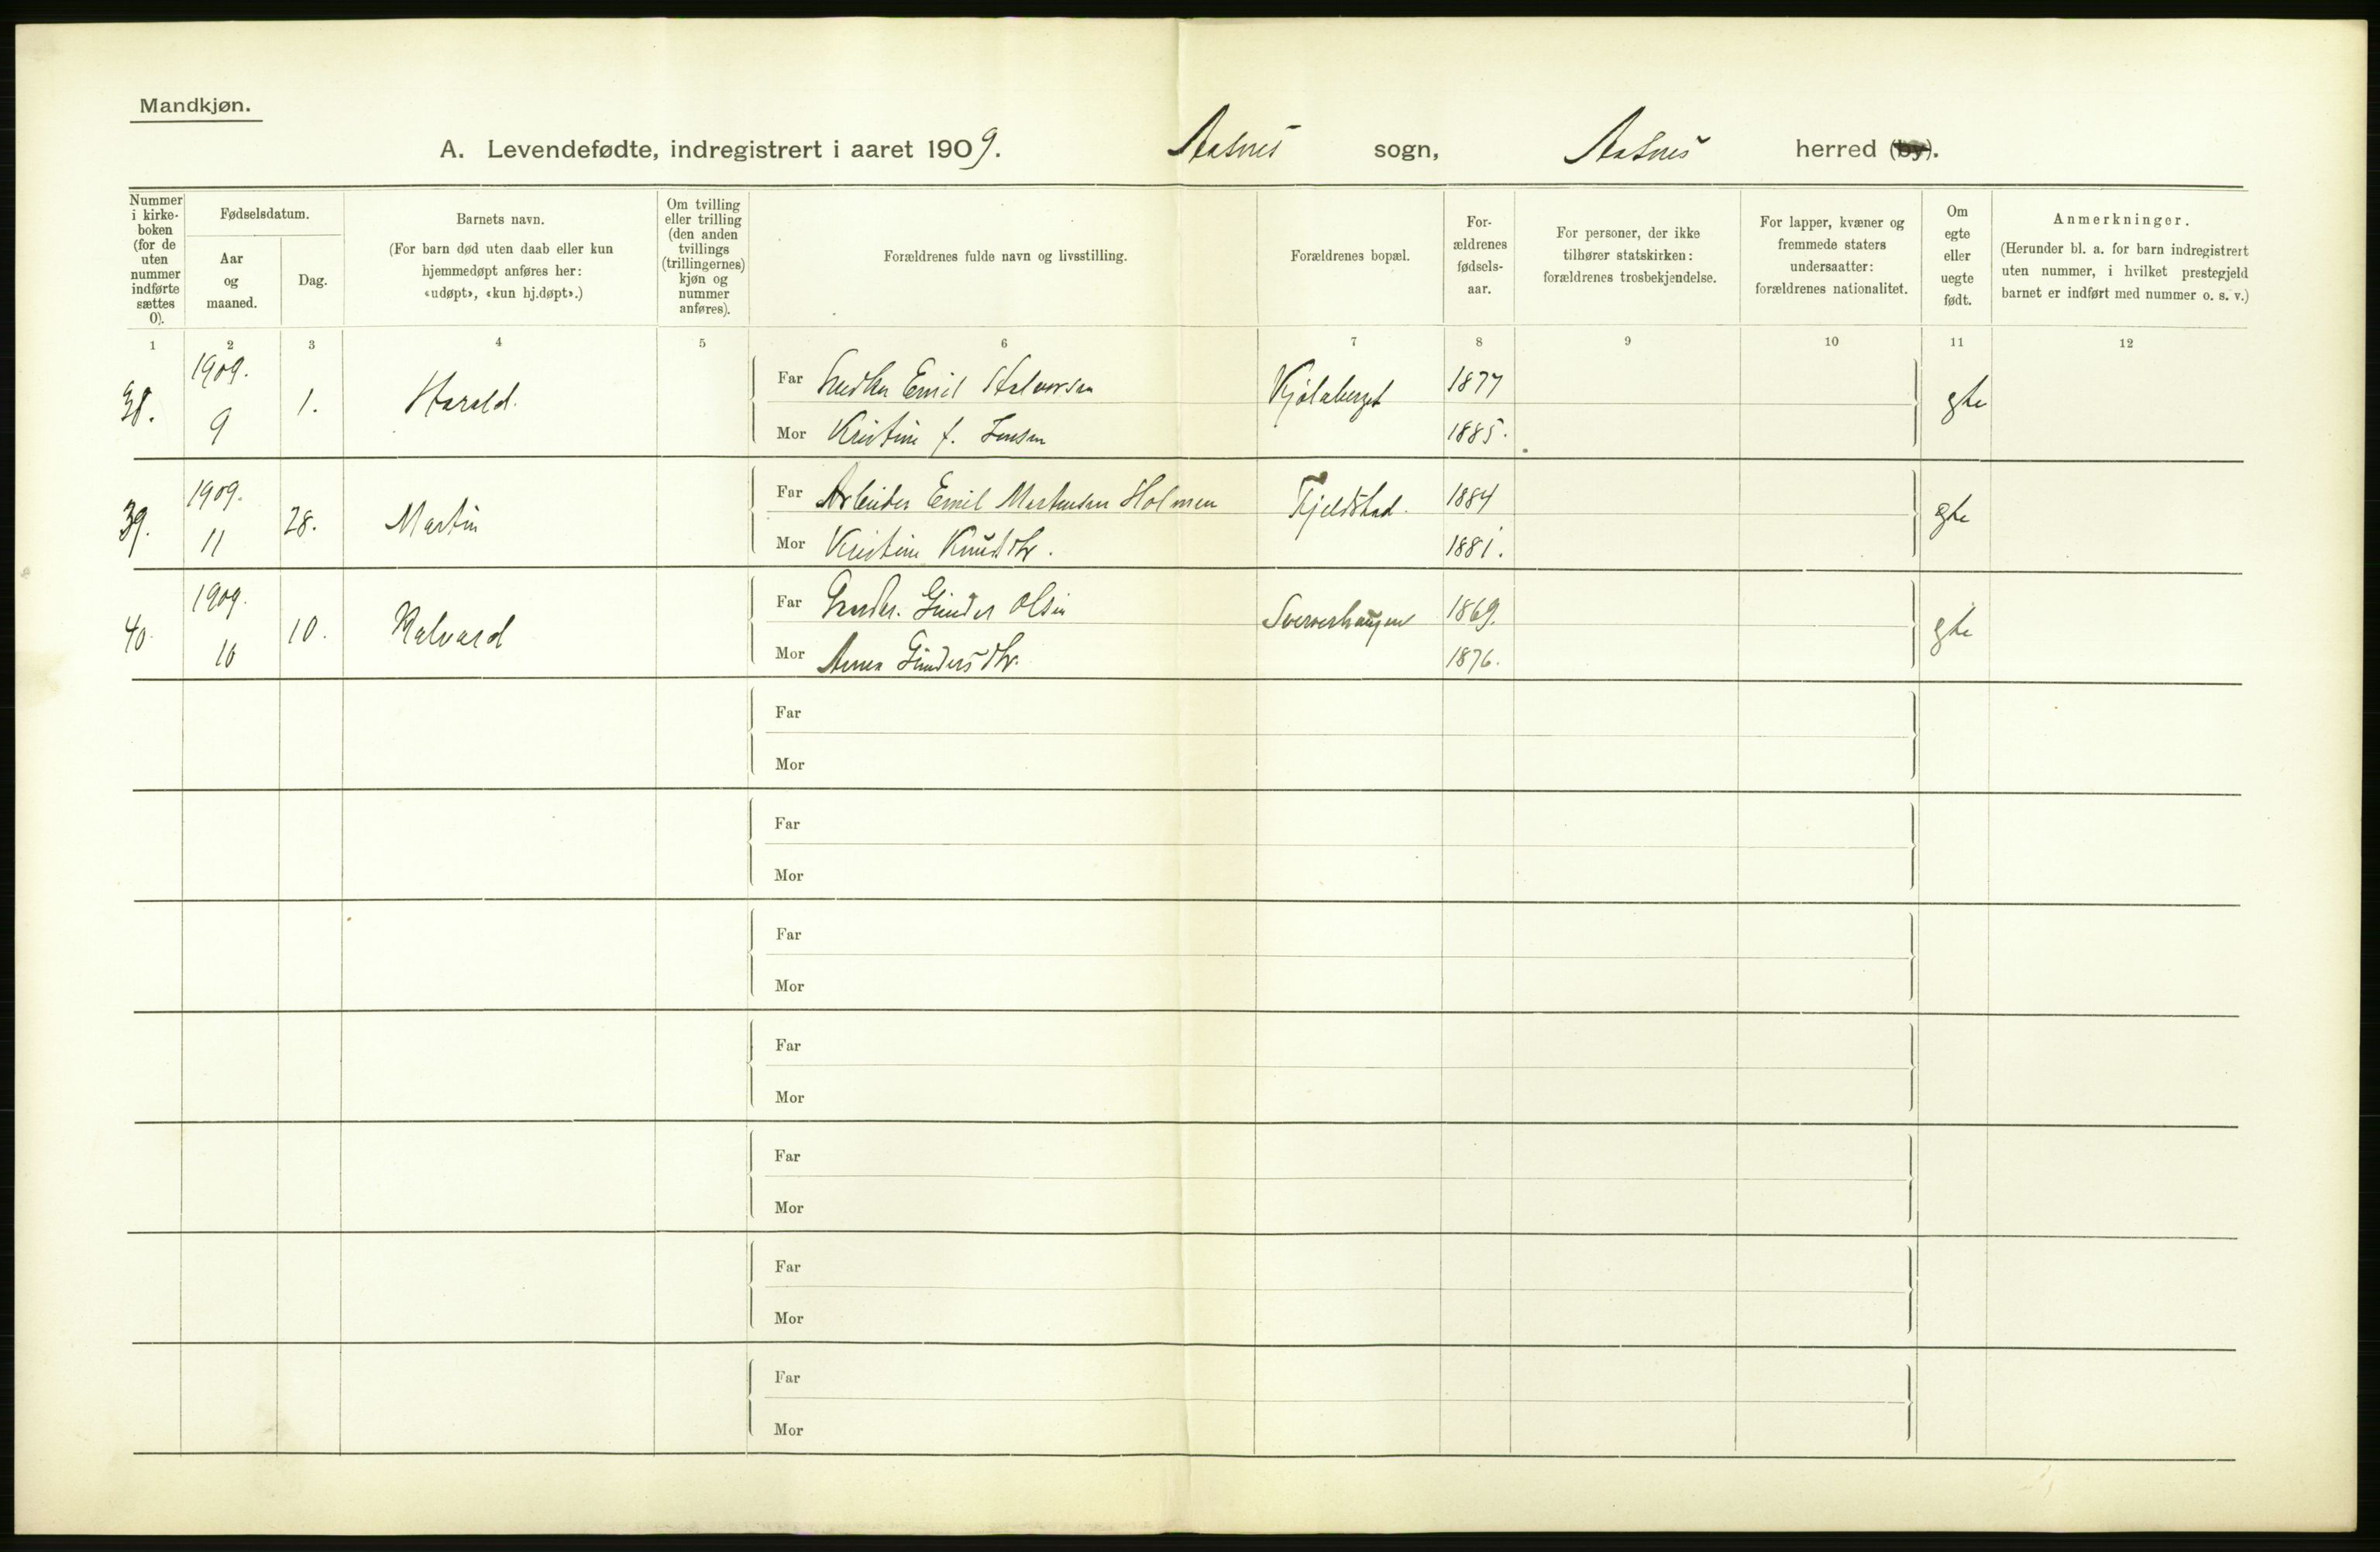 Mandkjøn.
A. Levendefødte, indregistrert i aaret 1909. Aasnes sogn, Aasnes herred (by).
Nummer i kirke-boken (for de uten nummer indførte sættes 0).
Fødselsdatum.
Aar og maaned.
Dag.
Barnets navn.
(For barn død uten daab eller kun hjemmedøpt anføres her: «udøpt», «kun hj.døpt».)
Om tvilling eller trilling (den anden tvillings (trillingernes) kjøn og nummer anføres).
Forældrenes fulde navn og livsstilling.
Forældrenes bopæl.
For-ældrenes fødsels-aar.
For personer, der ikke tilhører statskirken: forældrenes trosbekjendelse.
For lapper, kvæner og fremmede staters undersaatter: forældrenes nationalitet.
Om egte eller uegte født.
Anmerkninger.
(Herunder bl. a. for barn indregistrert uten nummer, i hvilket prestegjeld barnet er indført med nummer o. s. v.)
1 2 3 4 5 6 7 8 9 10 11 12
38. 1909. 9 1. Harald. Far Emil Halvorsen Kjølaberget 1877 egte
Mor Kristine f. Jensen 1885.
39. 1909. 11 28. Martin Far Arbeider Emil Martinsen Holmen Fjeldstad. 1884 egte
Mor Kristine Knudsdtr. 1881.
40. 1909. 10 10. Halvard Far Gaardbr. Gunder Olsen 1869. egte
Mor Anna Gundersdtr. 1876.
Far
Mor
Far
Mor
Far
Mor
Far
Mor
Far
Mor
Far
Mor
Far
Mor